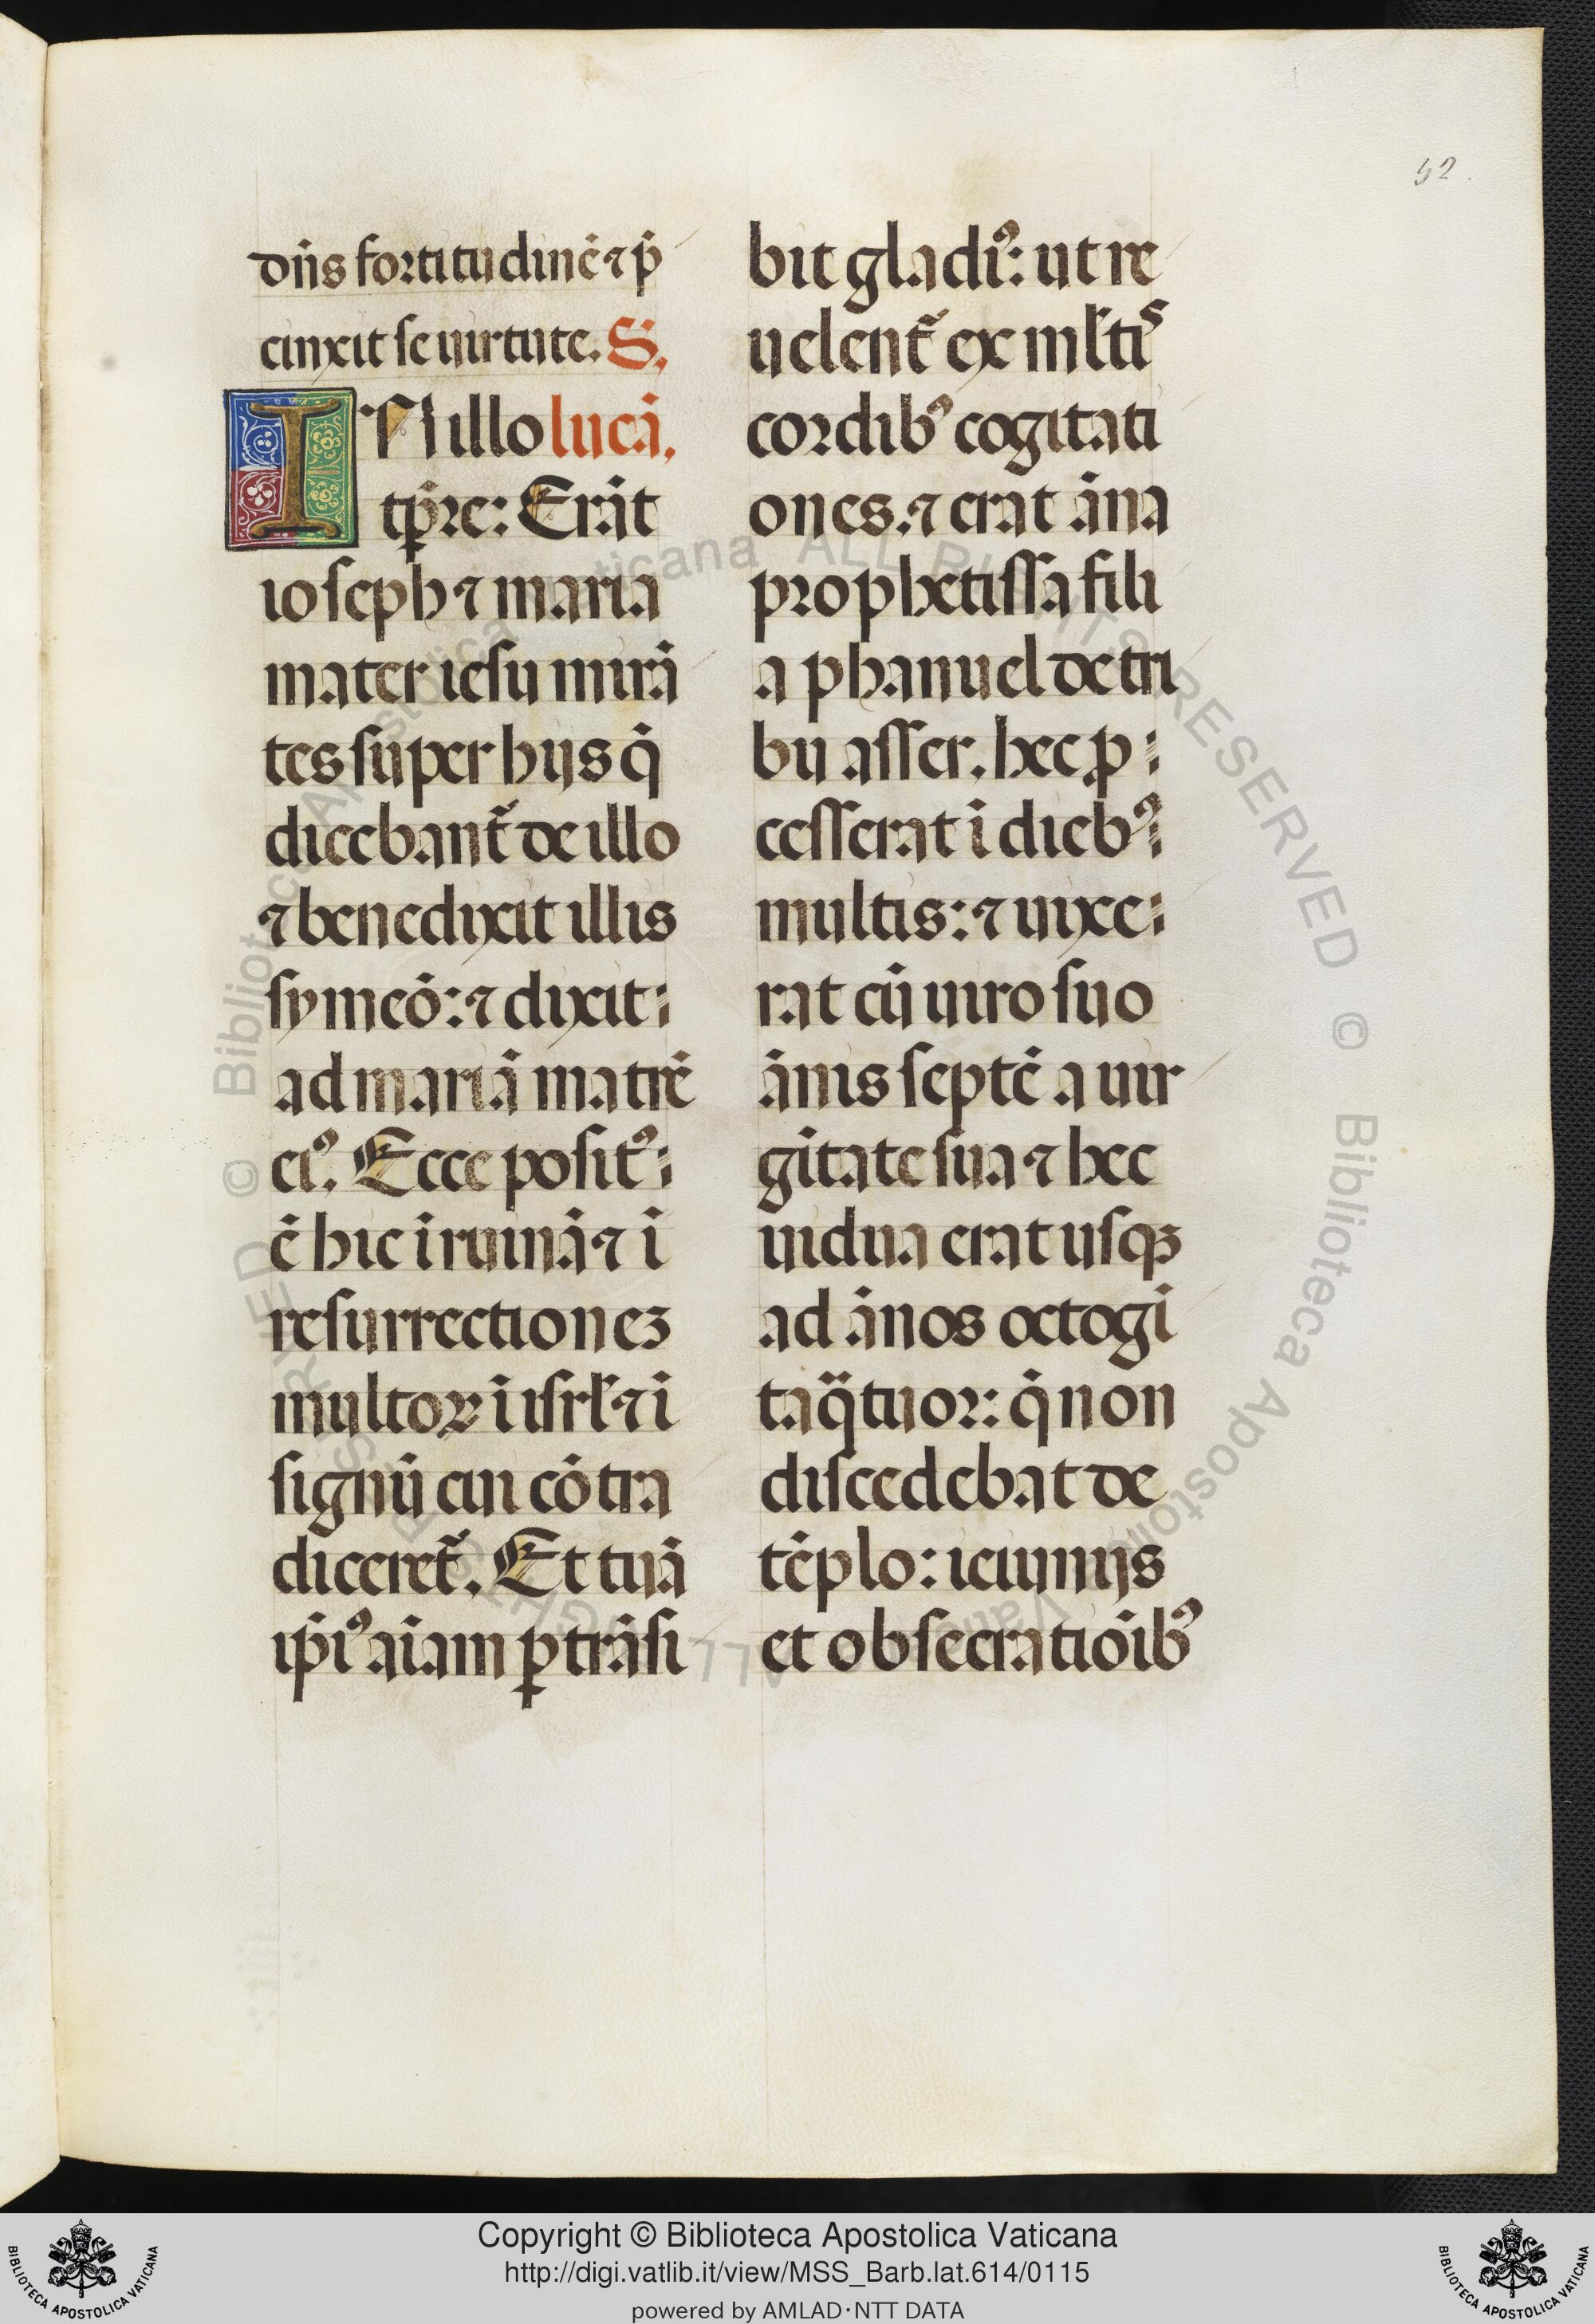 52.
dn̄s fortitudinē ⁊ p̄
cinxit se uirtute. S.
IN illo lucā.
tꝑre: Erāt
ioseph ⁊ maria
mater iesu mirā
tes super hijs q̄
dicebant᷑ de illo
⁊ benedixit illis
symeō: ⁊ dixit
ad mariā matrē
ei⁹. Ecce posit⁹
ē hic ī ruinā ⁊ ī
resurrectioneꝫ
multoꝝ ī isrl̄ ⁊ ī
signū cui cōtra
diceret᷑. Et tuā
ip̄i⁹ aīam ꝑtrāsi
bit gladi⁹: ut re
uelent᷑ ex ml̄tis
cordib⁹ cogitati
ones. ⁊ erat āna
prophetissa fili
a phanuel de tri
bu asser. hec ꝓ
cesserat ī dieb⁹
multis: ⁊ uixe
rat cū uiro suo
ānis septē a uir
gītate sua ⁊ hec
uidua erat usqꝫ
ad ānos octogī
taq̈tuor: q̄ non
discedebat de
tēplo: ieiunijs
et obsecratiōib⁹
© Biblioteca Apostolica Vaticana ALL RIGHTS RESERVED © Biblioteca Apostolica Vaticana ALL RIGHTS RESERVED
Copyright © Biblioteca Apostolica Vaticana
http://digi.vatlib.it/view/MSS_Barb.lat.614/0115
powered by AMLAD·NTT DATA
BIBLIOTECA APOSTOLICA VATICANA
BIBLIOTECA APOSTOLICA VATICANA